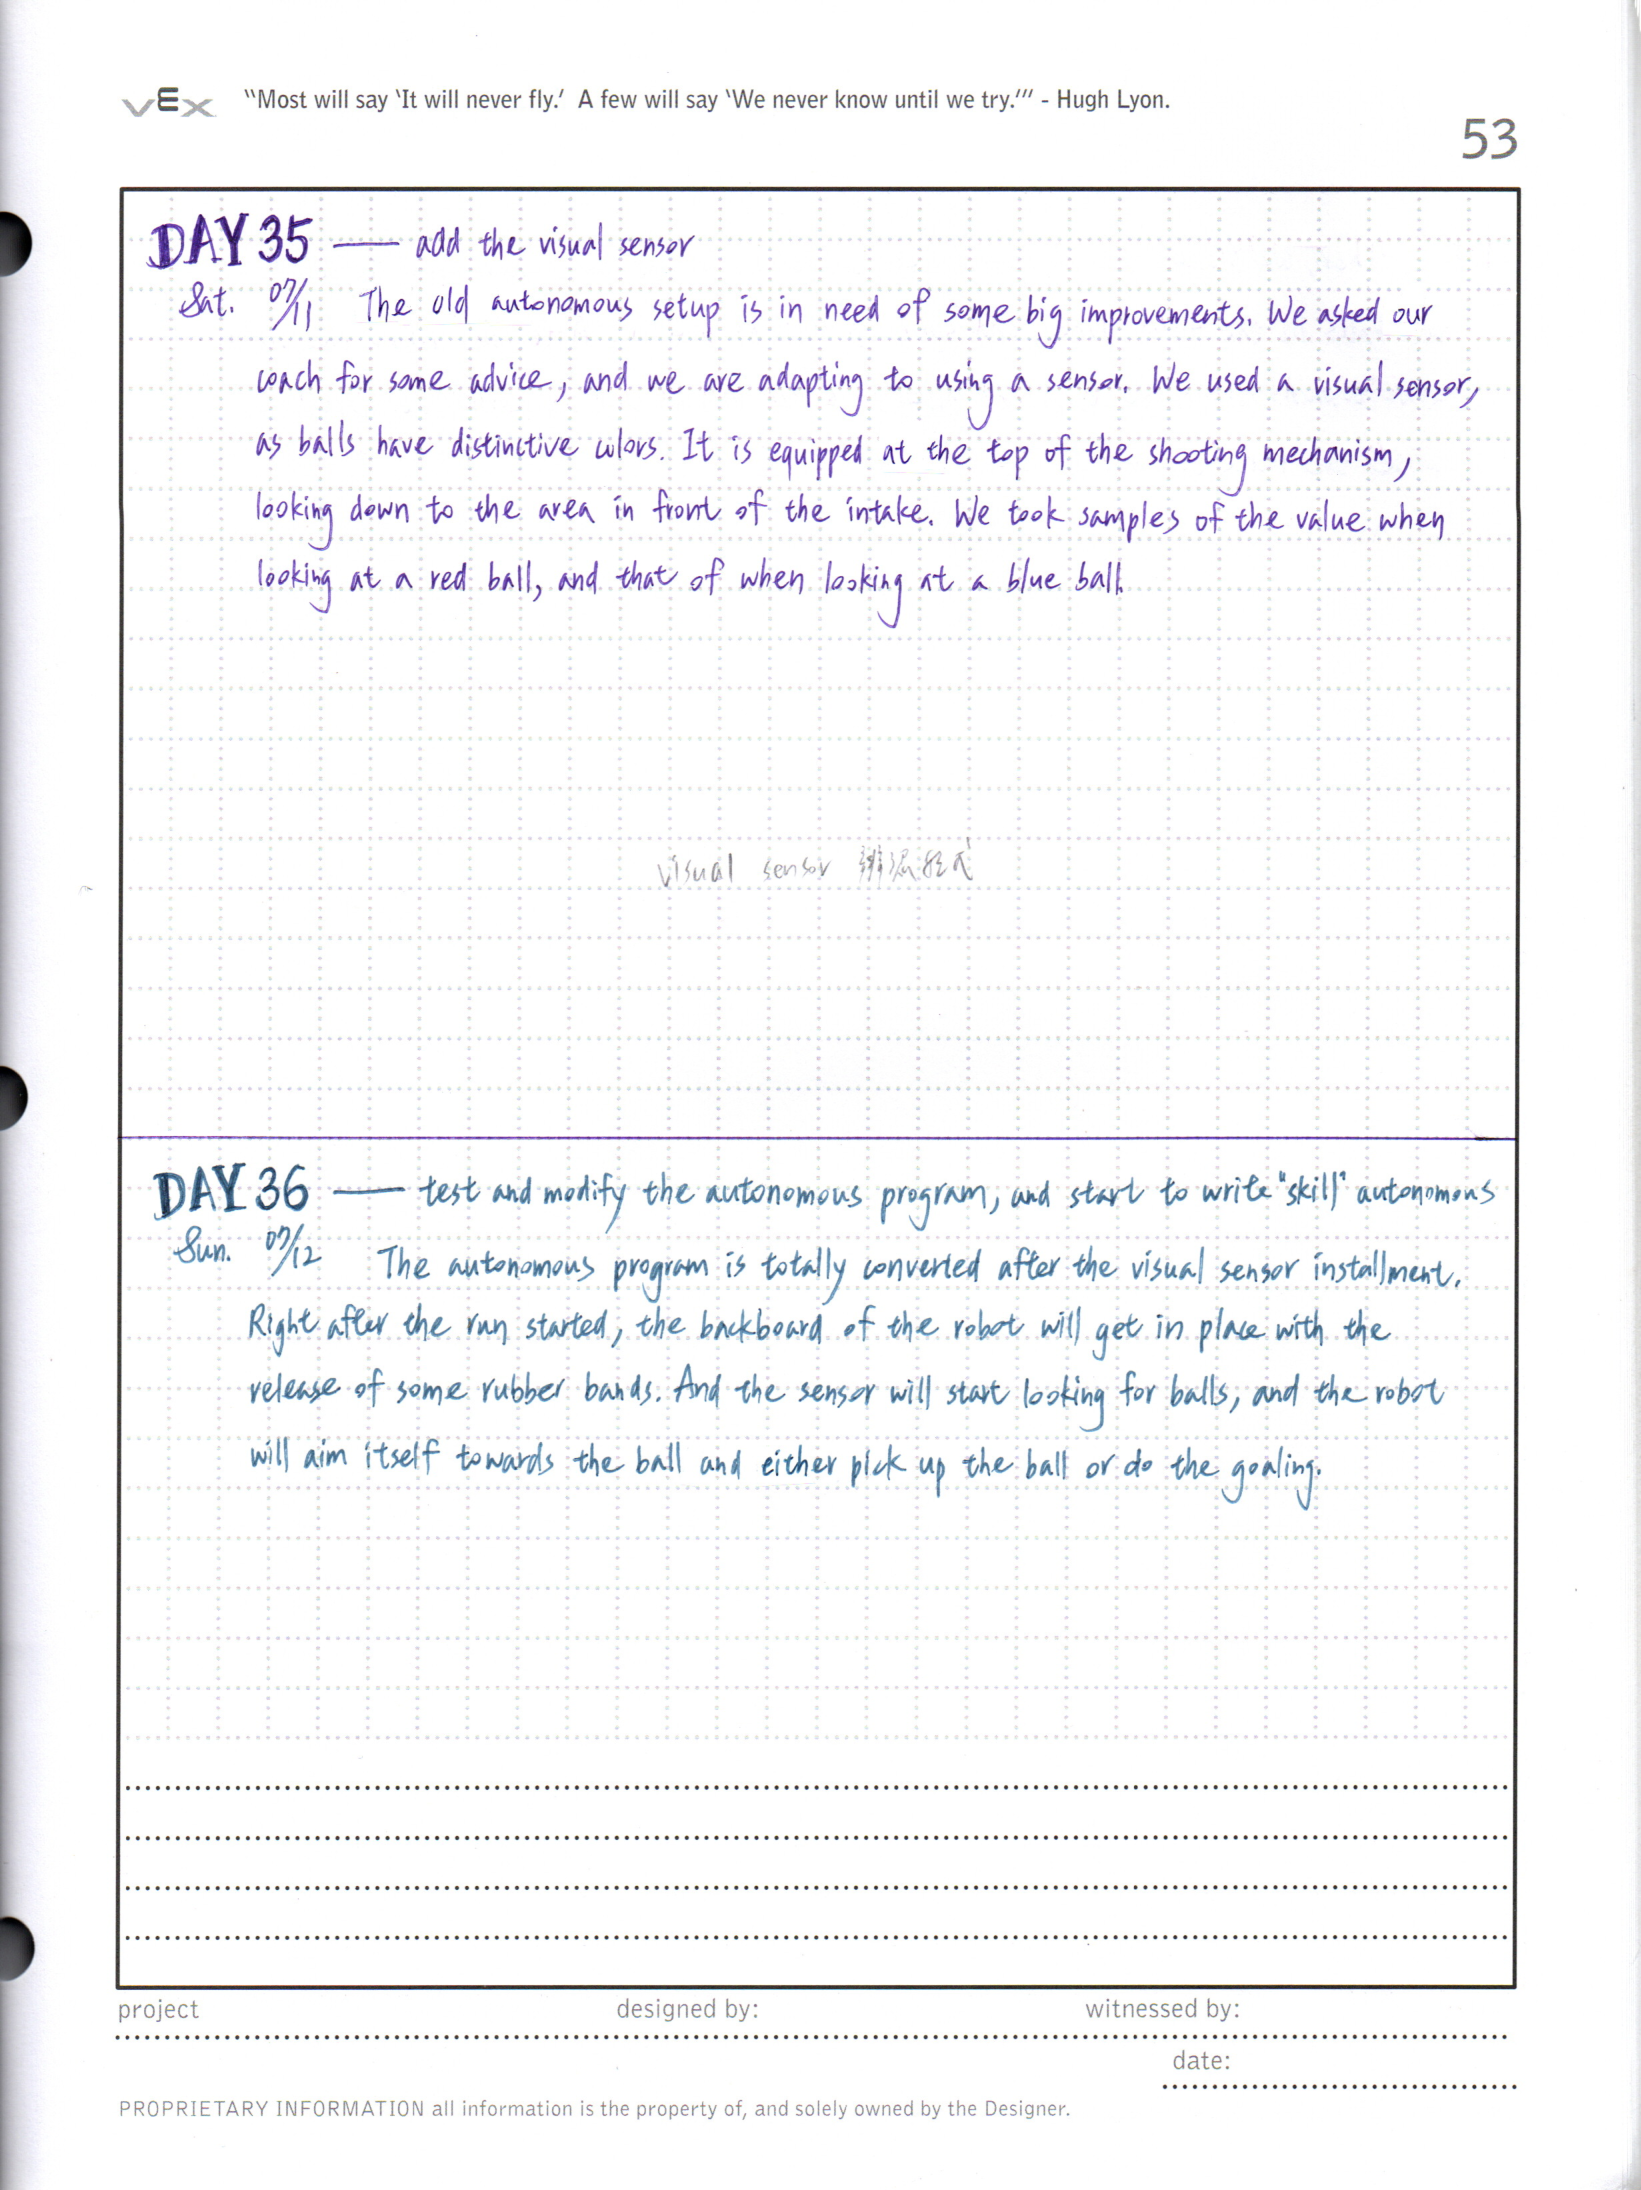 vEx "Most will say 'It will never fly.' A few will say 'We never know until we try.'" - Hugh Lyon.
53
DAY 35 — add the visual sensor
Sat. 07/11 The old autonomous setup is in need of some big improvements. We asked our
coach for some advice, and we are adapting to using a sensor. We used a visual sensor,
as balls have distinctive colors. It is equipped at the top of the shooting mechanism,
looking down to the area in front of the intake. We took samples of the value when
looking at a red ball, and that of when looking at a blue ball.
visual sensor 辨識程式
DAY 36 — test and modify the autonomous program, and start to write "skill" autonomous
Sun. 07/12 The autonomous program is totally converted after the visual sensor installment.
Right after the run started, the backboard of the robot will get in place with the
release of some rubber bands. And the sensor will start looking for balls, and the robot
will aim itself towards the ball and either pick up the ball or do the goaling.
project designed by: witnessed by:
date:
PROPRIETARY INFORMATION all information is the property of, and solely owned by the Designer.